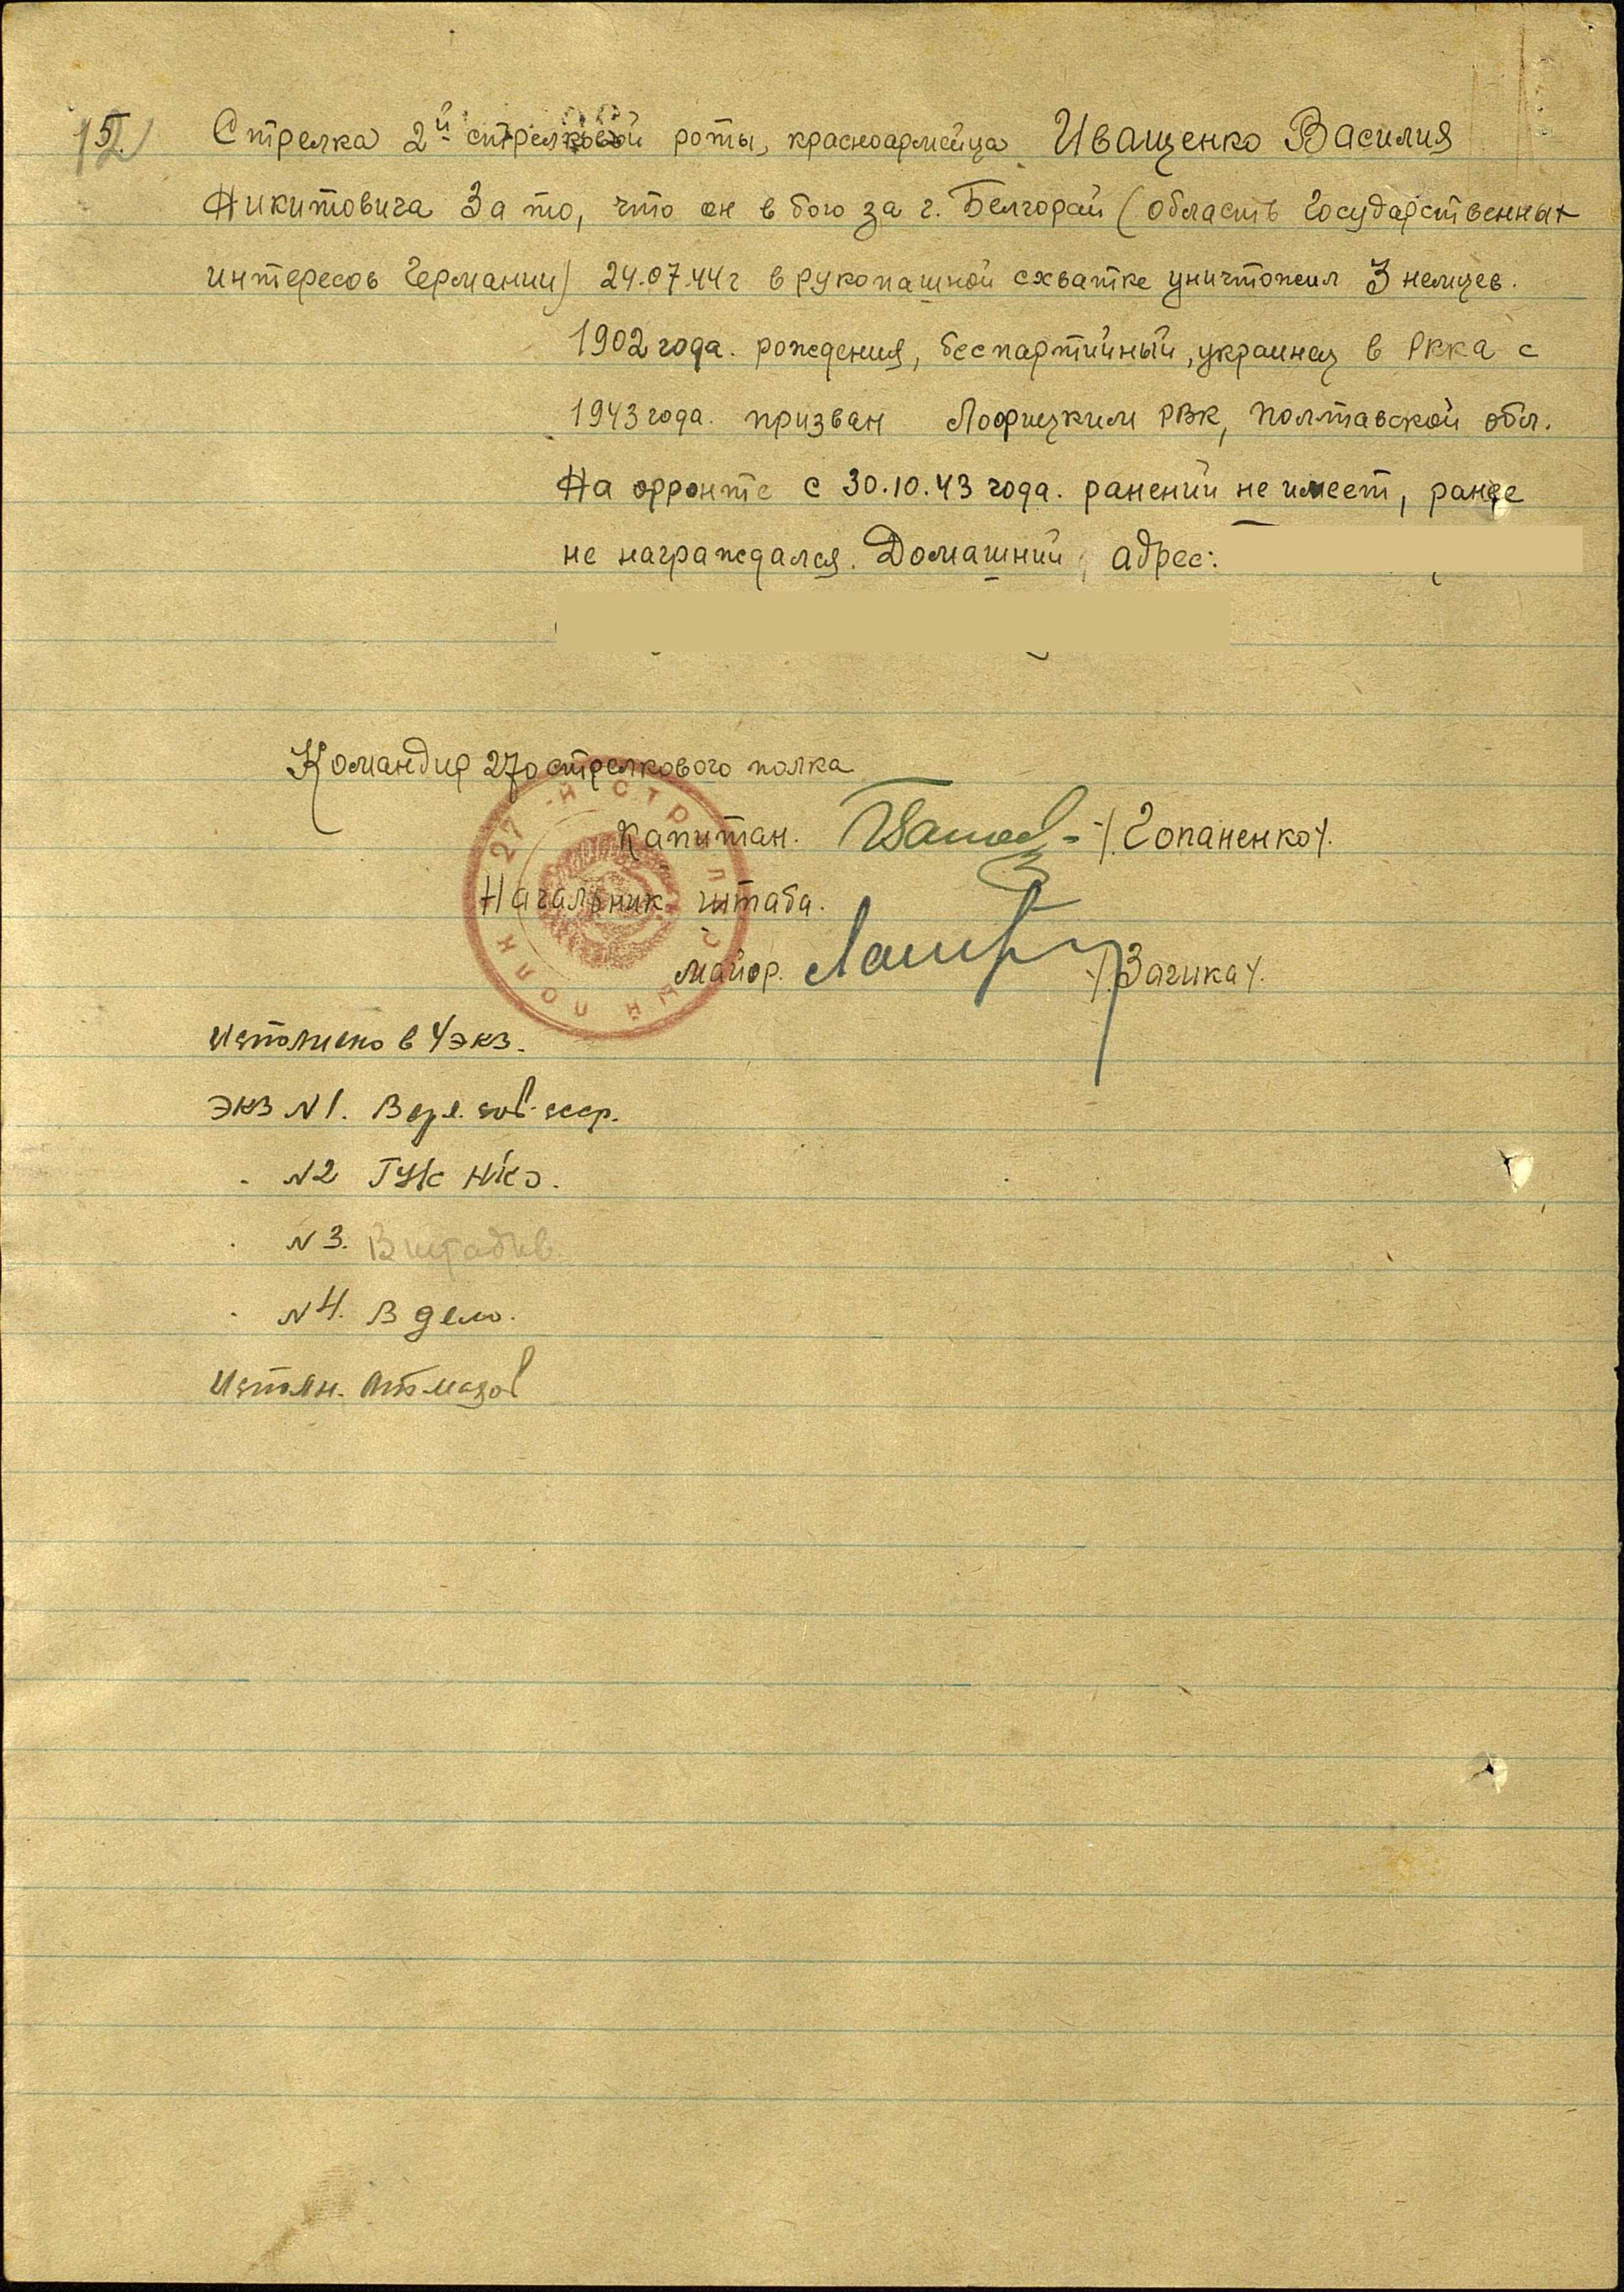 15. Стрелка 2й стрелковой роты, красноармейца Иващенко Василия
Никитовича За то, что он в бою за г. Белгорай (область Государственных
интересов Германии) 24.07.44г в рукопашной схватке уничтожил 3 немцев.
1902 года. рождения, беспартийный, украинец в РККА с
1943 года. призван Лофицким РВК, Полтавской обл.
На фронте с 30.10.43 года. ранений не имеет, ранее
не награждался. Домашний адрес:
Командир 27го стрелкового полка
Капитан. /Гопаненко/.
Начальник штаба.
Майор. /Загика/.
27-Й СТРЕЛКОВЫЙ ПОЛК
Исполнено в 4 экз.
Экз №1. Верх. сов. ссср.
" №2 ГУК НКО.
" №3. В штадив.
" №4. В дело.
Исполн.